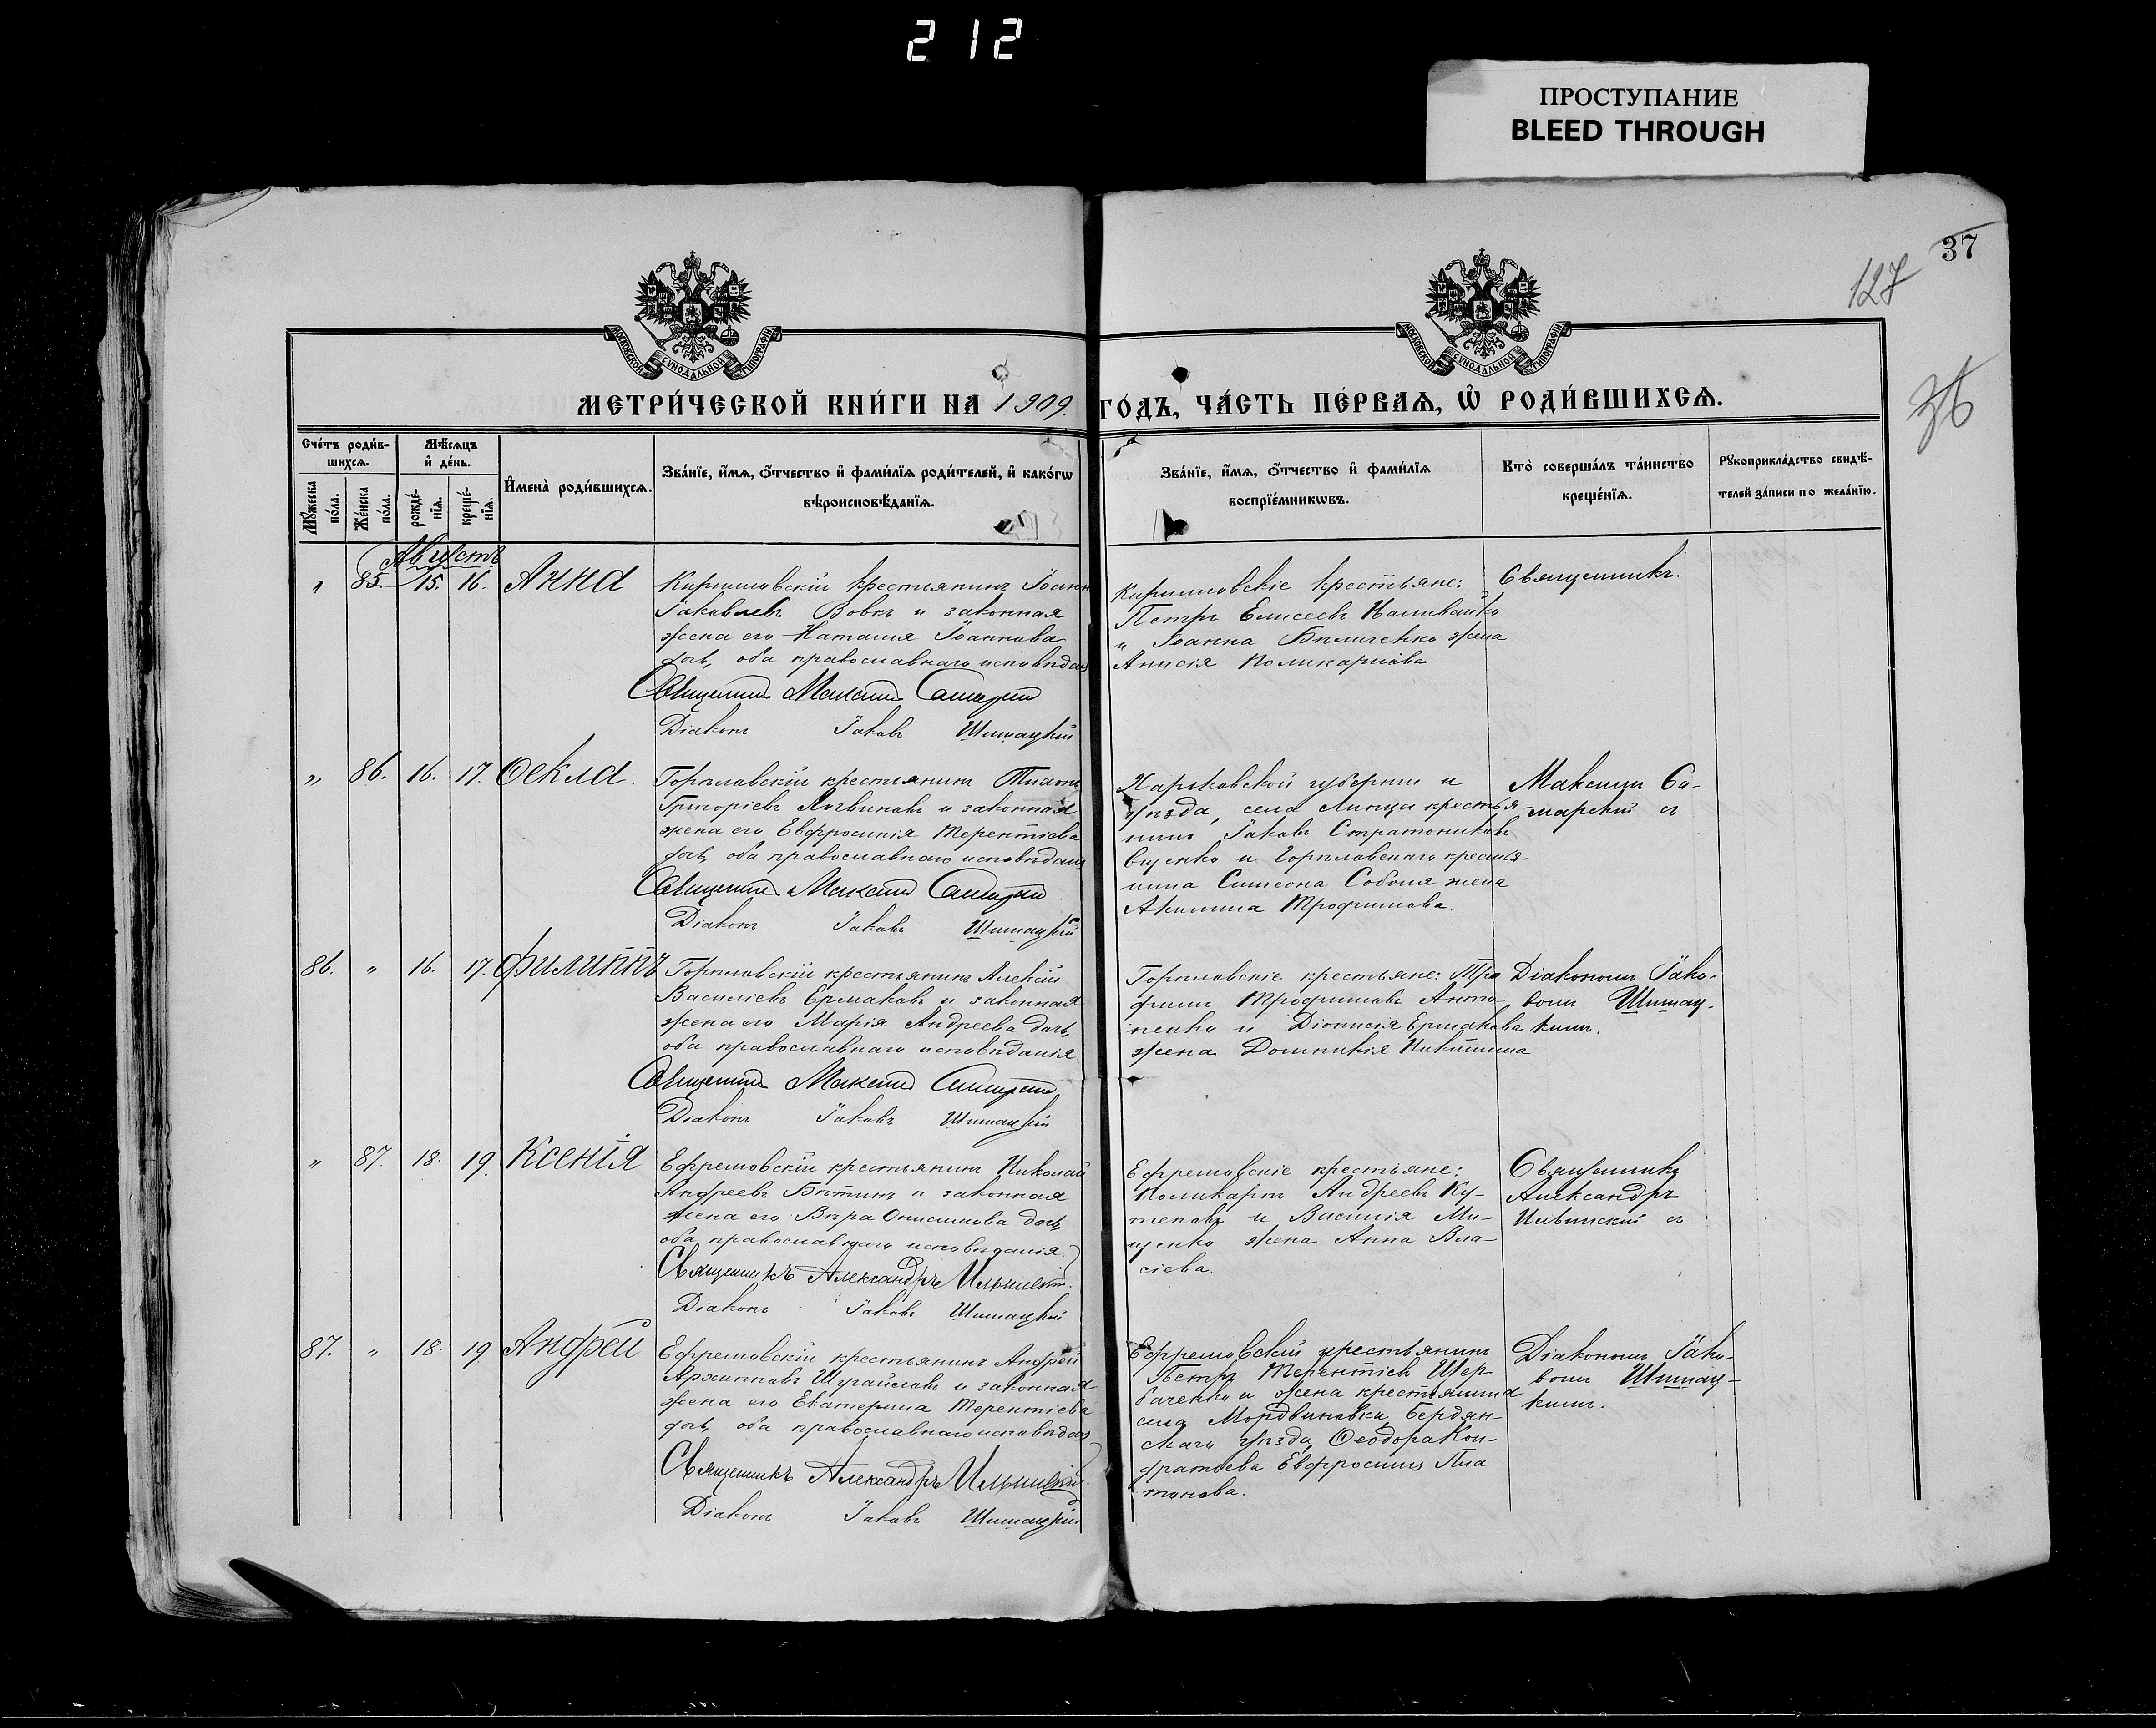 212
ПРОСТУПАНИЕ
BLEED THROUGH
37
127
36
МОСКОВСКОЙ СѴНОДАЛЬНОЙ ТИПОГРАФІИ
МОСКОВСКОЙ СѴНОДАЛЬНОЙ ТИПОГРАФІИ
МЕТРИ́ЧЕСКОЙ КНИ́ГИ НА 1909. ГО́ДЪ, ЧА́СТЬ ПЕ́РВАЯ, Ѡ РОДИ́ВШИХСЯ.
Счéтъ роди́в-
шихся.
Мѣ́сяцъ
и҆ де́нь.
Мꙋ́жеска по́ла.
Же́нска по́ла.
рожде́-нїя.
креще́-нїя.
И҆мена̀ роди́вшихся.
Зва́нїе, и҆́мя, ѻ҆́тчество и҆ фами́лїя роди́телей, и҆ како́гѡ
вѣроисповѣ́данїя.
Зва́нїе, и҆́мя, ѻ҆́тчество и҆ фами́лїя
воспрїе́мникѡвъ.
Кто̀ соверша́лъ та́инство
креще́нїя.
Рꙋкоприкла́дство свидѣ́-
телей за́писи по жела́нїю.
Августъ
" 85. 15. 16. Анна
Кирилловскій крестьянинъ Іоаннъ
Іаковлевъ Вовкъ и законная
жена его Наталія Іоаннова
дочь, оба православнаго исповѣдан
Священникъ Максимъ Самарскій
Діаконъ Іаковъ Шимацкій
Кирилловскіе крестьяне:
Петръ Елисеевъ Наливайко
и Іоанна Биличенко жена
Анисія Поликарпова
Священникъ.
" 86. 16. 17. Ѳекла.
Горѣловскій крестьянинъ
Григоріевъ Литвиновъ и законная
жена его Евфросинія Терентіева
дочь, оба православнаго исповѣдан
Священникъ Максимъ Самарскій
Діаконъ Іаковъ Шимацкій
Харьковской губерніи и
уѣзда, села Липцы крестья-
нинъ Іаковъ Стратониковъ
и Горѣловскаго крестья-
нина Симеона Соболя жена
Акилина Трофимова.
Максимъ Са-
марскій съ
86. " 16. 17. Филиппъ
Горѣловскій крестьянинъ Алексій
Василіевъ Ермаковъ и законная
жена его Марія Андреева дочь,
оба православнаго исповѣданія.
Священникъ Максимъ Самарскій
Діаконъ Іаковъ Шимацкій
Горѣловскіе крестьяне: Тро
фимъ Трофимовъ Анто-
ненко и Діонисія Ермакова
жена Домникія Никитина
Діакономъ Іако-
вомъ Шимац-
кимъ.
" 87. 18. 19. Ксенія
Ефремовскій крестьянинъ Николай
Андреевъ Бѣтинъ и законная
жена его Вѣра Онисимова дочь,
оба православнаго исповѣданія.
Священникъ Александръ Ильинскій.
Діаконъ Іаковъ Шимацкій
Ефремовскіе крестьяне:
Поликарпъ Андреевъ Ку-
теповъ и Василія Ми-
щенко жена Анна Вла-
сіева.
Священникъ
Александръ
Ильинскій съ
87. " 18. 19. Андрей
Ефремовскій крестьянинъ Андрей
Архиповъ и законная
жена его Екатерина Терентіева
дочь, оба православнаго исповѣдан
Священникъ Александръ Ильинскій.
Діаконъ Іаковъ Шимацкій
Ефремовскій крестьянинъ
Петръ Терентіевъ Щер
баченко и жена крестьянина
села Мордвиновки, Бердян-
скаго уѣзда, Ѳеодора Кон-
дратьева Евфросинія Пла
тонова.
Діакономъ Іако-
вомъ Шимац-
кимъ.